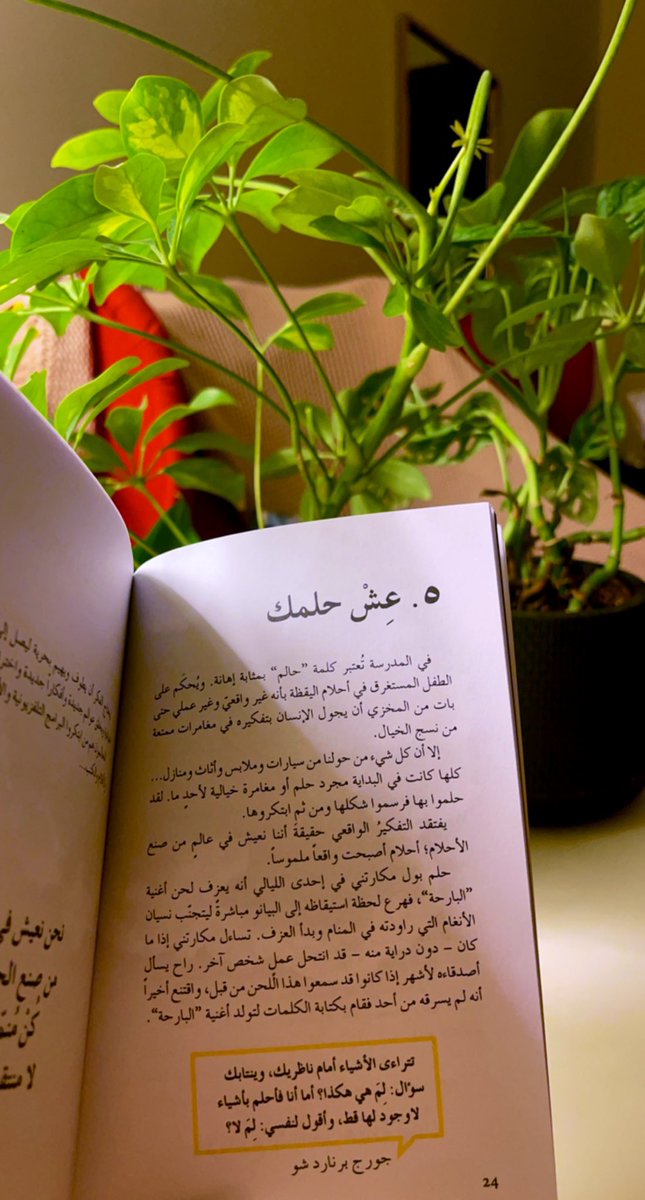 ٥. عِشْ حلمك
في المدرسة تُعتبر كلمة "حالم" بمثابة إهانة. ويُحكَم على
الطفل المستغرق في أحلام اليقظة بأنه غير واقعيّ وغير عملي حتى
بات من المخزي أن يجول الإنسان بتفكيره في مغامرات ممتعة
من نسج الخيال.
إلا أن كل شيء من حولنا من سيارات وملابس وأثاث ومنازل...
كلها كانت في البداية مجرد حلم أو مغامرة خيالية لأحدٍ ما. لقد
حلموا بها فرسموا شكلها ومن ثم ابتكروها.
يفتقد التفكيرُ الواقعي حقيقةَ أننا نعيش في عالمٍ من صنع
الأحلام؛ أحلام أصبحت واقعاً ملموساً.
حلم بول مكارتني في إحدى الليالي أنه يعزف لحن أغنية
"البارحة"، فهرع لحظة استيقاظه إلى البيانو مباشرةً ليتجنّب نسيان
الأنغام التي راودته في المنام وبدأ العزف. تساءل مكارتني إذا ما
كان - دون دراية منه - قد انتحل عمل شخص آخر. راح يسأل
أصدقاءه لأشهر إذا كانوا قد سمعوا هذا اللّحن من قبل، واقتنع أخيراً
أنه لم يسرقه من أحد فقام بكتابة الكلمات لتولد أغنية "البارحة".
تتراءى الأشياء أمام ناظريك، وينتابك
سؤال: لِمَ هي هكذا؟ أما أنا فأحلم بأشياء
لاوجود لها قط، وأقول لنفسي: لِمَ لا؟
جورج برنارد شو
24
نحن نعيش في
من صنع